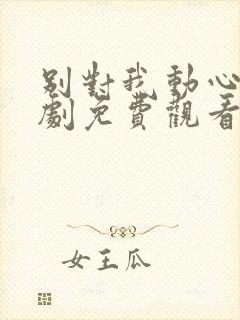 別對我動心
劇免費觀看
女王瓜